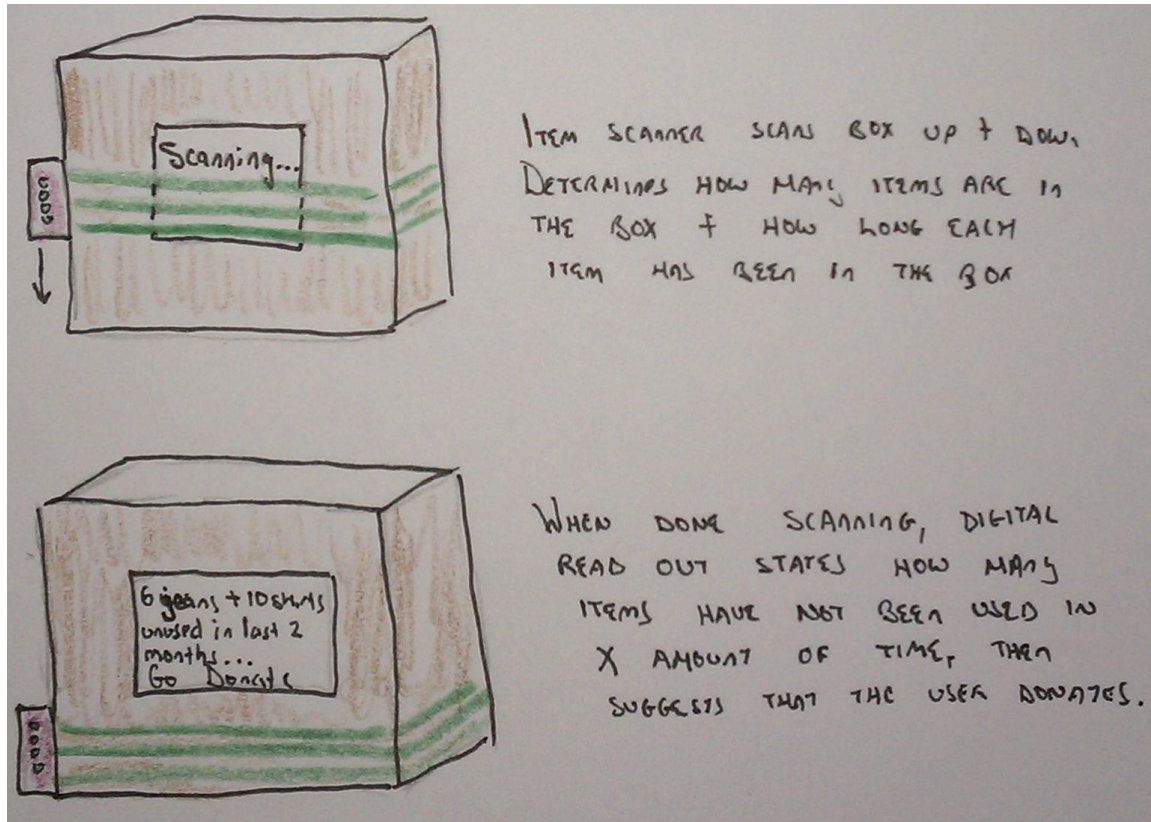 Scanning...
ITEM SCANNER SCANS BOX UP + DOWN.
DETERMINES HOW MANY ITEMS ARE IN
THE BOX + HOW LONG EACH
ITEM HAS BEEN IN THE BOX
6 jeans + 10 shirts
unused in last 2
months...
Go Donate
WHEN DONE SCANNING, DIGITAL
READ OUT STATES HOW MANY
ITEMS HAVE NOT BEEN USED IN
X AMOUNT OF TIME, THEN
SUGGESTS THAT THE USER DONATES.